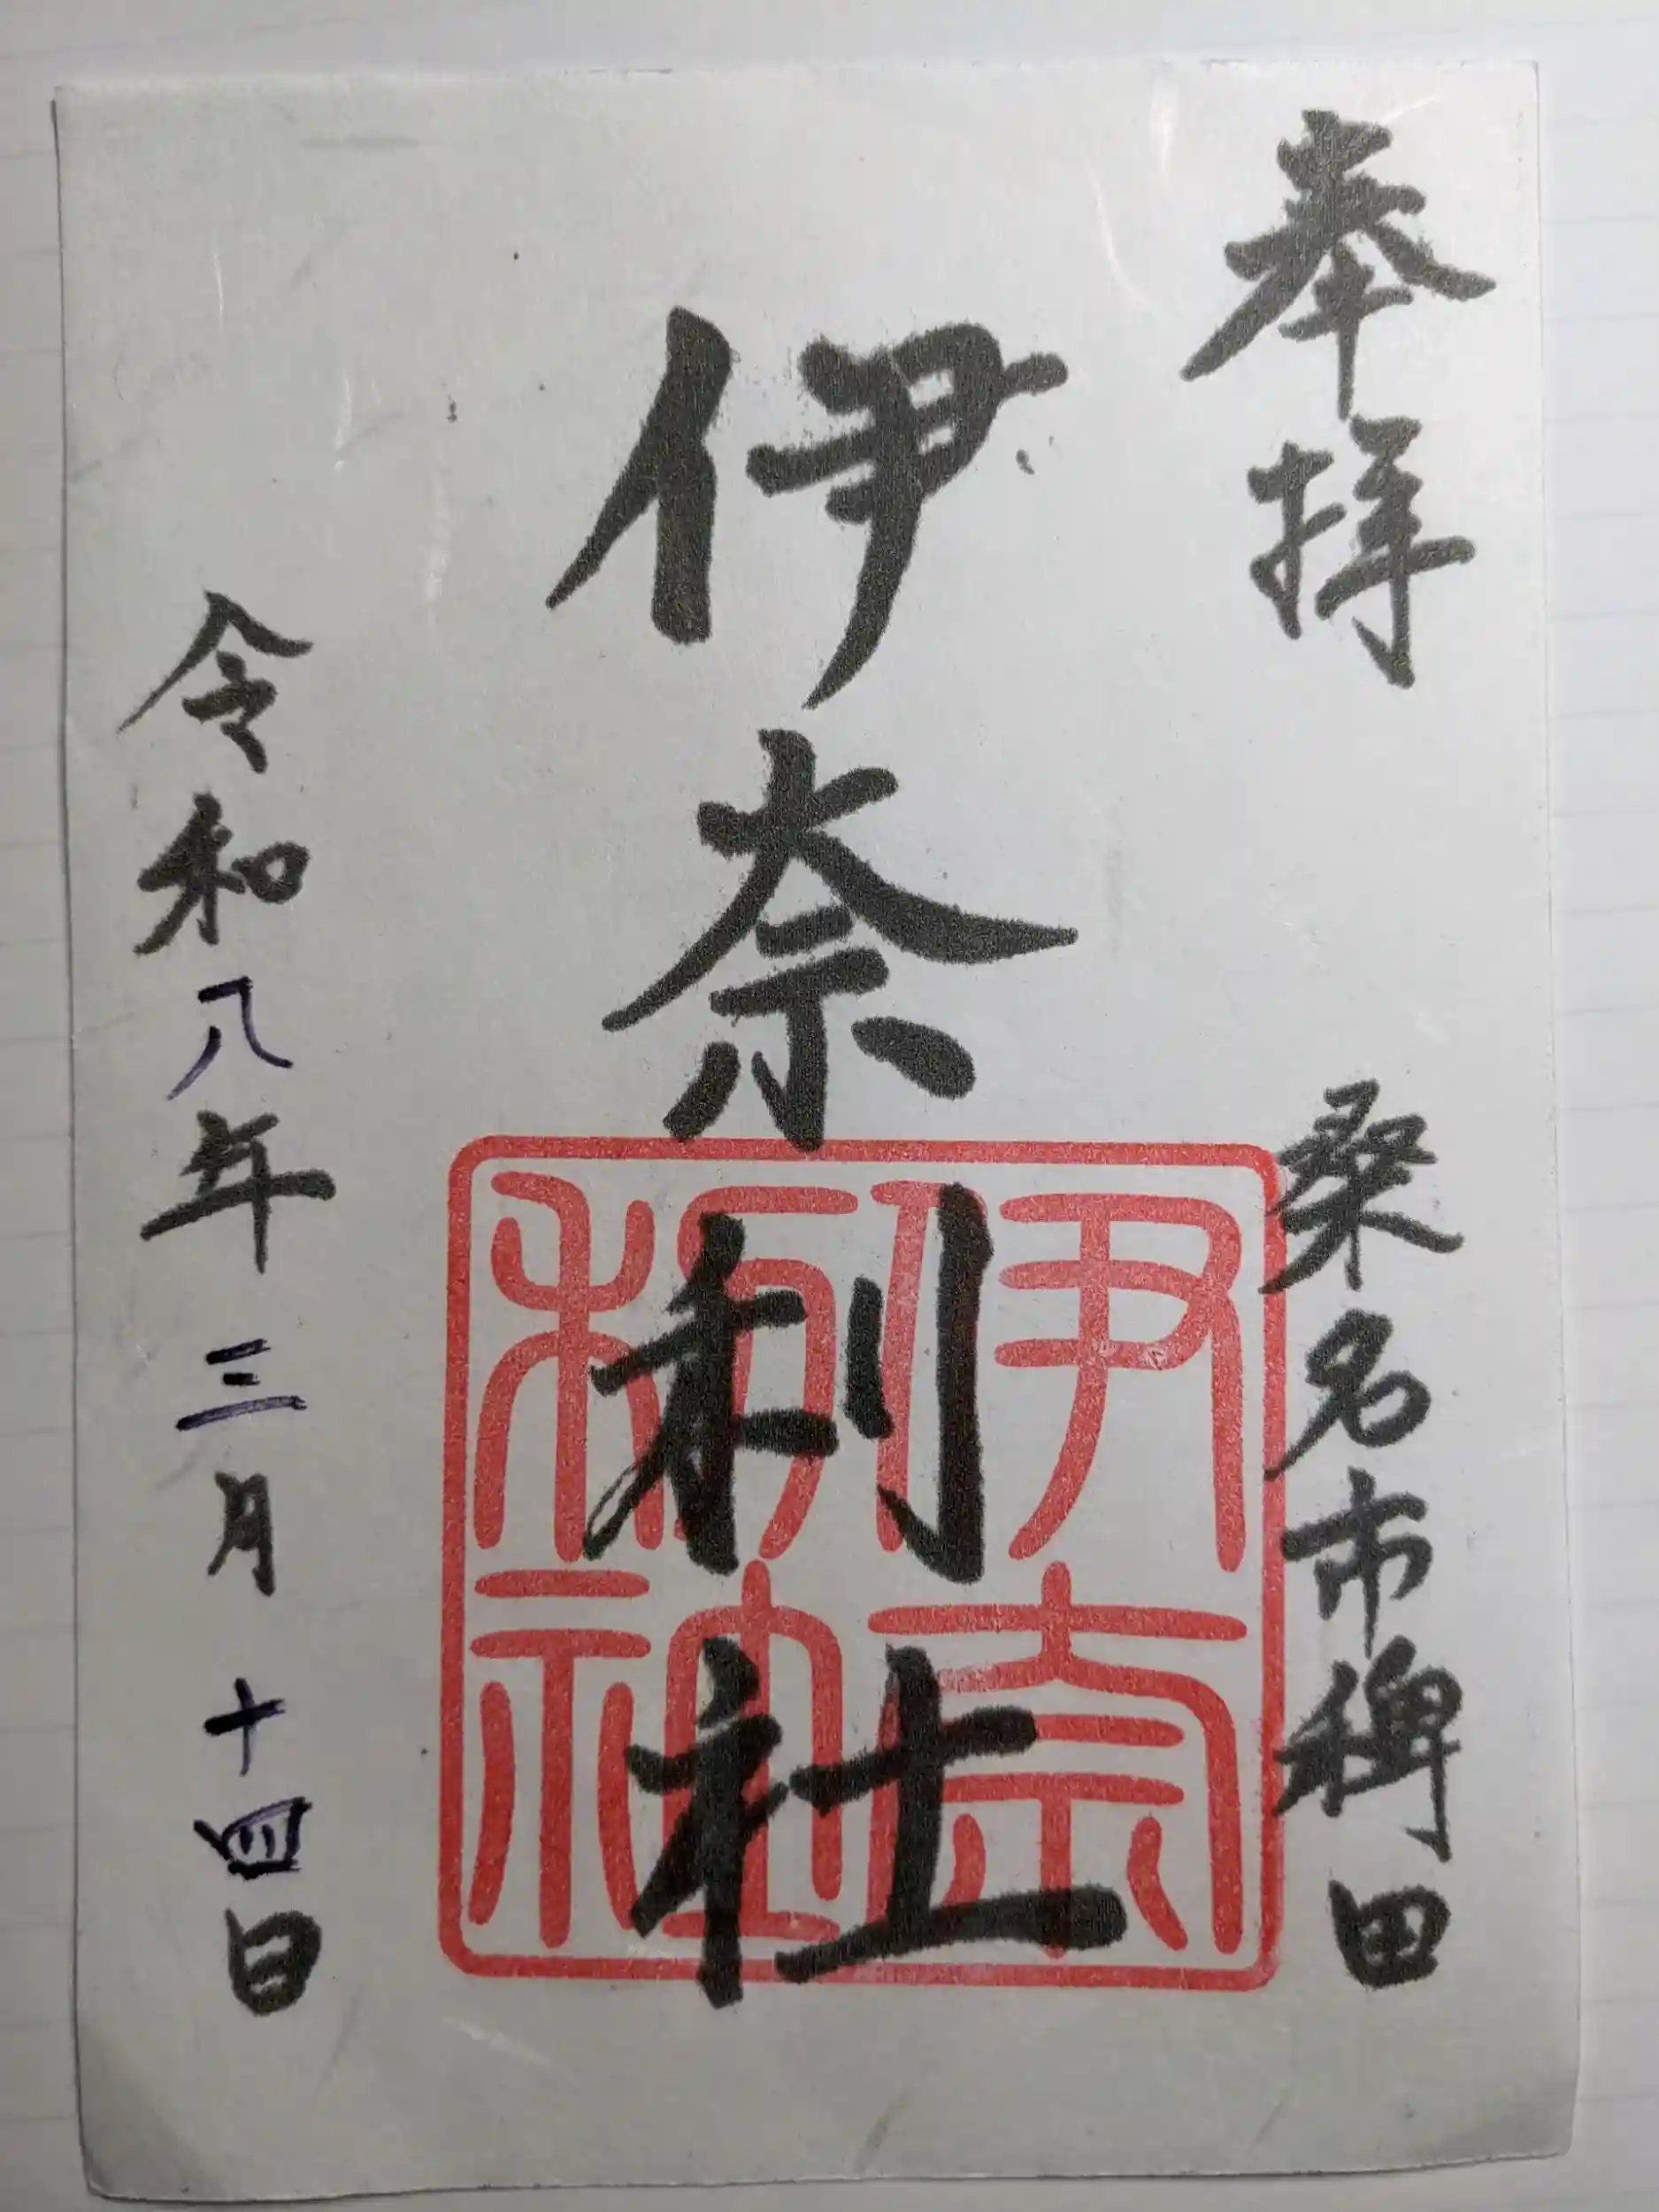 奉拝
桑名市稗田
伊奈利社
令和八年三月十四日
伊奈
利